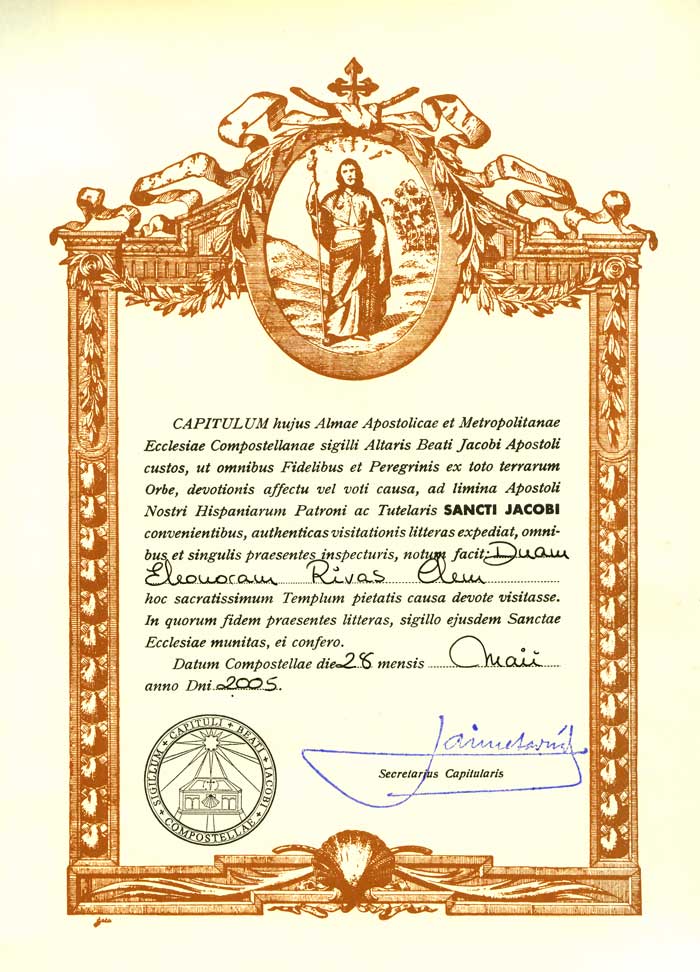 CAPITULUM hujus Almae Apostolicae et Metropolitanae
Ecclesiae Compostellanae sigilli Altaris Beati Jacobi Apostoli
custos, ut omnibus Fidelibus et Peregrinis ex toto terrarum
Orbe, devotionis affectu vel voti causa, ad limina Apostoli
Nostri Hispaniarum Patroni ac Tutelaris SANCTI JACOBI
convenientibus, authenticas visitationis litteras expediat, omni-
bus et singulis praesentes inspecturis, notum facit: Dnam
Eleonoram Rivas
hoc sacratissimum Templum pietatis causa devote visitasse.
In quorum fidem praesentes litteras, sigillo ejusdem Sanctae
Ecclesiae munitas, ei confero.
Datum Compostellae die 28 mensis Maii
anno Dni 2005.
SIGILLUM + CAPITULI + BEATI + JACOBI + COMPOSTELLAE +
Secretarius Capitularis